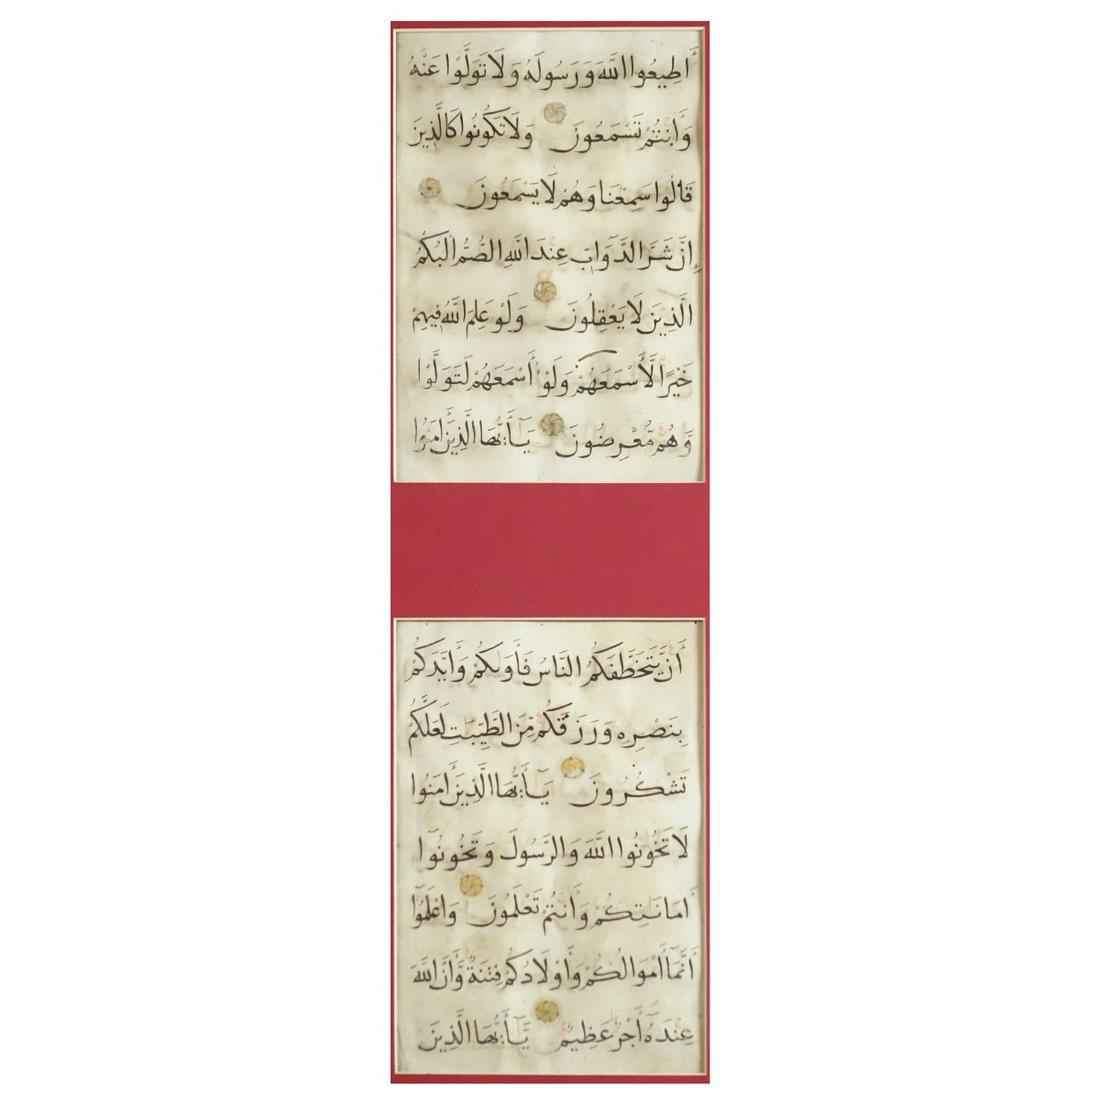 أَطِيعُوا اللَّهَ وَرَسُولَهُ وَلَا تَوَلَّوْا عَنْهُ
وَأَنتُمْ تَسْمَعُونَ وَلَا تَكُونُوا كَالَّذِينَ
قَالُوا سَمِعْنَا وَهُمْ لَا يَسْمَعُونَ
إِنَّ شَرَّ الدَّوَابِّ عِندَ اللَّهِ الصُّمُّ الْبُكْمُ
الَّذِينَ لَا يَعْقِلُونَ وَلَوْ عَلِمَ اللَّهُ فِيهِمْ
خَيْرًا لَّأَسْمَعَهُمْ وَلَوْ أَسْمَعَهُمْ لَتَوَلَّوْا
وَهُم مُّعْرِضُونَ يَٰٓأَيُّهَا الَّذِينَ ءَامَنُوا
أَن يَتَخَطَّفَكُمُ النَّاسُ فَـَٔاوَىٰكُمْ وَأَيَّدَكُم
بِنَصْرِهِ وَرَزَقَكُم مِّنَ الطَّيِّبَٰتِ لَعَلَّكُمْ
تَشْكُرُونَ يَٰٓأَيُّهَا الَّذِينَ ءَامَنُوا
لَا تَخُونُوا اللَّهَ وَالرَّسُولَ وَتَخُونُوٓا
أَمَانَٰتِكُمْ وَأَنتُمْ تَعْلَمُونَ وَاعْلَمُوٓا
أَنَّمَآ أَمْوَالُكُمْ وَأَوْلَادُكُمْ فِتْنَةٌ وَأَنَّ اللَّهَ
عِندَهُٓ أَجْرٌ عَظِيمٌ يَٰٓأَيُّهَا الَّذِينَ